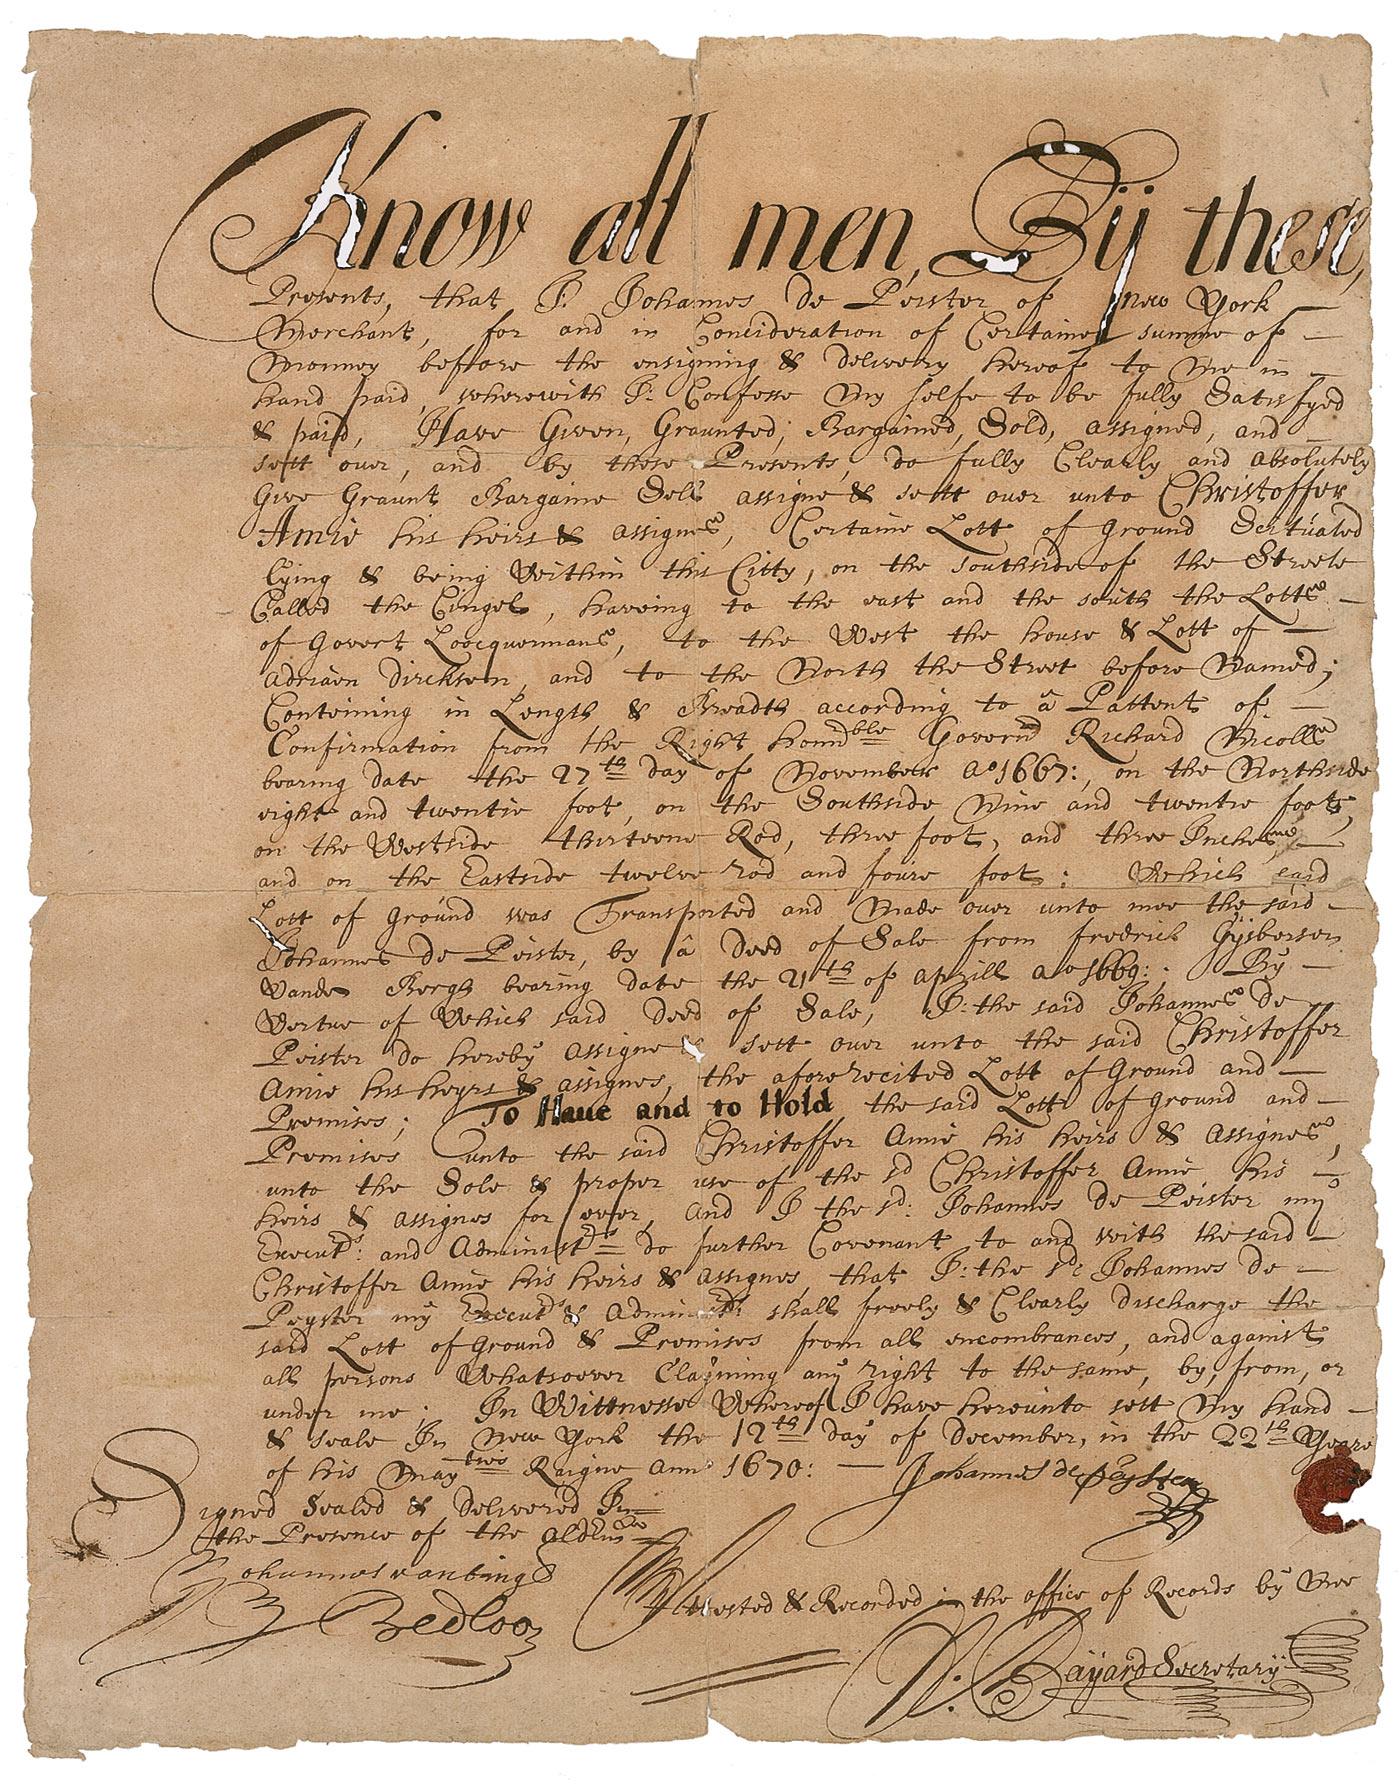 Know all men, By these,
Presents, that I: Johannes de Peister of New York
Merchant, for and in Concideration of Certaine summe of —
Monney before the ensigning & delivery hereof to Me in —
hand paid, wherewith I: Confesse My selfe to be fully Satisfyed
& paid, Have Given, Graunted, Bargained, Sold, assigned, and —
sett over, and by these Presents, do fully Clearly and absolutely
Give Graunt Bargaine Sell assigne & sett over unto Christoffer
Amie his heirs & assignes, Certaine Lott of Ground Scituated
lying & being Within this Citty, on the southside of the Streete
Called the Cingel, haveing to the east and the south the Lottes —
of Govert Loocquermans, to the West the house & Lott of —
Adriaen Dircksen, and to the North the Street before Named;
Conteining in Length & Breadth according to â Pattent of —
Confirmation from the Right honnoble Govern Richard Nicolls
bearing date the 27th day of November Ao 1667:, on the Northside
eight and twentie foot, on the Southside Nine and twentie foot,
on the Westside thirteene Rod, three foot, and three Inches, —
and on the Eastside twelve rod and foure foot: Which said
Lott of Ground was Transported and Made over unto mee the said —
Johannes de Peister, by â Deed of Sale from fredrick Gijsbersen
Vanden Bergh bearing date the 21th of aprill ao 1669: . By —
Vertue of Which said Deed of Sale, I: the said Johannes de
Peister do hereby assigne & sett over unto the said Christoffer
Amie his heyrs & assignes, the afore recited Lott of Ground and —
Premises; To Have and to Hold the said Lott of Ground and —
Premises unto the said Christoffer Amie his heirs & Assignes,
unto the Sole & proper use of the sd Christoffer Amie his —
heirs & assignes for ever, And I the sd: Johannes de Peister my
Executrs: and Administrs = do further Covenant to and with the said —
Christoffer Amie his heirs & assignes, that I: the sd: Johannes de —
Peyster my Executrs & Administrs: shall freely & Clearly discharge the
said Lott of Ground & Premises from all encombrances, and against
all persons Whatsoever Clayming any right to the same, by, from, or
under me; In Wittnesse Whereof I have hereunto sett My hand —
& seale In New York the 12th day of December, in the 22th Yeare
of his Maytties Raigne Ann 1670: — Johannes de Peyster
Signed Sealed & Delivered In
the Presence of the
Johannes van Brugh
Bedloo
Attested & Recorded in the office of Records by Mee
N. Bayard Secretary